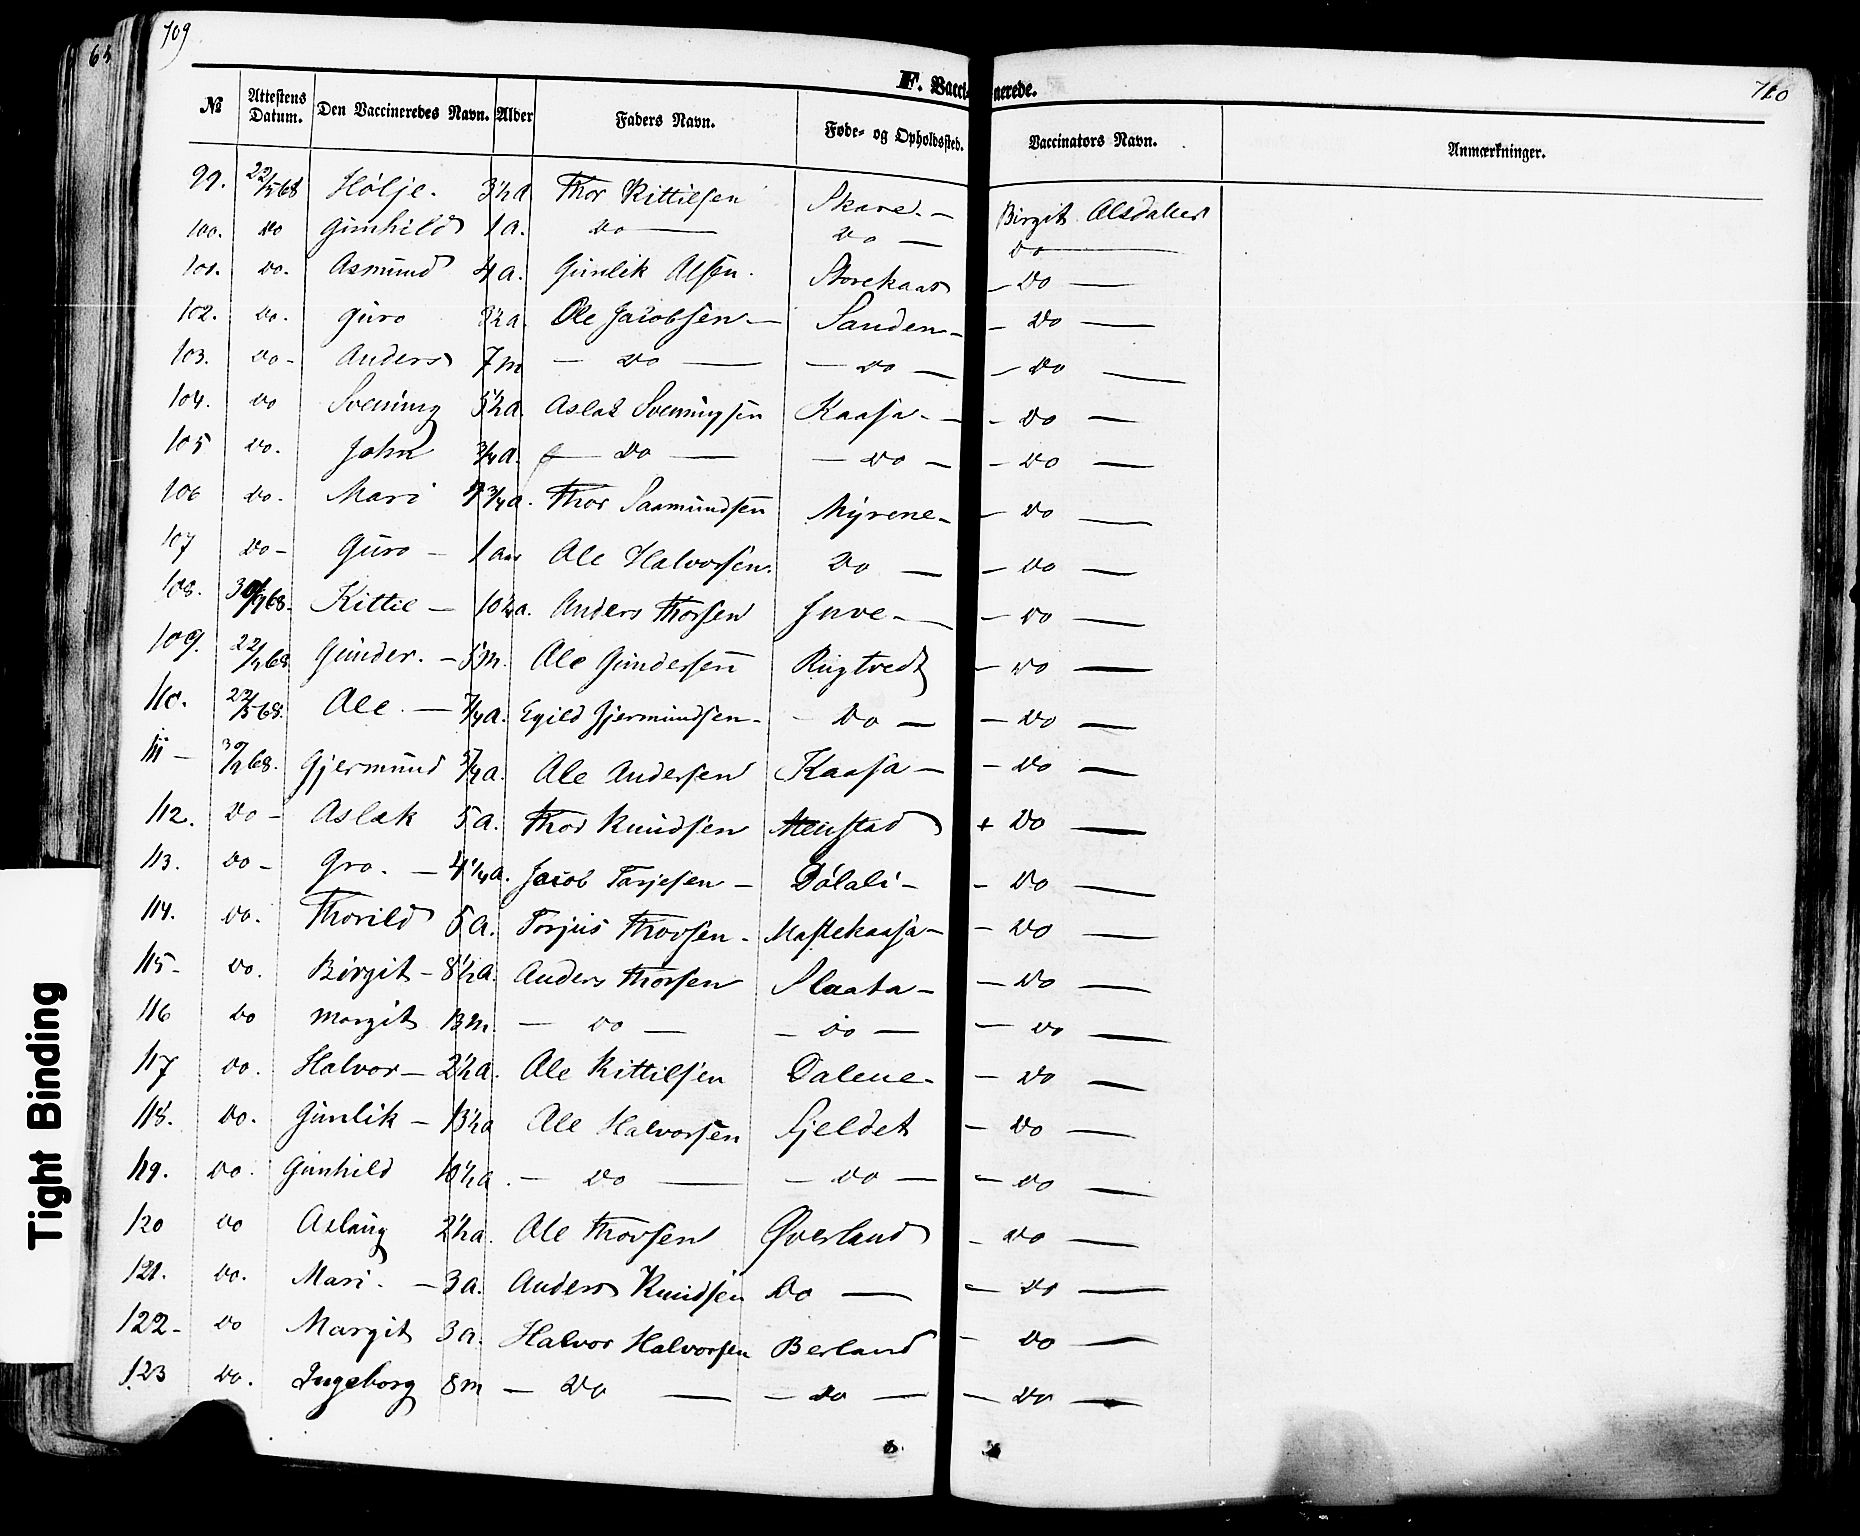 709
710
65
F. Vaccinerede.
№ Attestens Datum. Den Vaccineredes Navn. Alder Faders Navn. Føde- og Opholdssted. Vaccinators Navn. Anmærkninger.
99. 22/5 68 Hölje. 3½ a Thor Kittilsen Skare. — Birgit Olsdatter
100. Do Gunhild 1 a. Do — Do — Do —
101. Do. Asmund 4 a. Gunlik Olsen. Storekaas — Do —
102. Do. Guro ½ a. Ole Jacobsen — Sanden — — Do —
103. Do — Anders 7 m — Do — — Do — — Do —
104. Do Svening 5½ a Aslak Sveningsen Kaasa — — Do —
105 Do. John ¾ a. — Do — — Do — — Do —
106 Do. Mari ¾ a. Thor Saamundsen Myrene — — Do —
107 Do — Guro — 1 aar Ole Halvorsen. Do — — Do —
108. 30/9 68. Kittil — 10½ a. Anders Thorsen Juve — — Do —
109. 22/9 68 Gunder. — 5 m. Ole Gundersen Rugtvedt — Do —
110. 22/5 68. Ole — 7/4 a. Egild Gjermundsen — — Do — — Do —
111 — 30/9 68. Gjermund ¾ a. Ole Andersen Kaasa — — Do —
112. Do — Aslak 5 a. Thor Knudsen + Do —
113. Do — Gro. — 4¼ a. Jacob Tarjesen — Dölali — — Do —
114. Do. Thorild 5 a. Torjus Thovsen — Mastekaasa — — Do —
115 — Do. Birgit — 8½ a. Anders Thorsen Slaata — — Do —
116 Do Margit 13 m. — Do — — Do — — Do —
117 Do. Halvor — 2½ a. Ole Kittilsen Dalene — — Do —
118. Do. Gunlik — 13½ a Ole Halvorsen Fjeldet — Do —
119. Do. Gunhild 10½ a. — Do — — Do — — Do —
120 Do Aslaug 2½ a. Ole Thovsen Øverland — Do —
121. Do. Mari. — 3 a. Anders Knudsen Do — — Do —
122 — Do Margit 3 a. Halvor Halvorsen Berland — Do —
123 Do. Ingeborg 8 m — Do — — Do — — Do —
Tight Binding